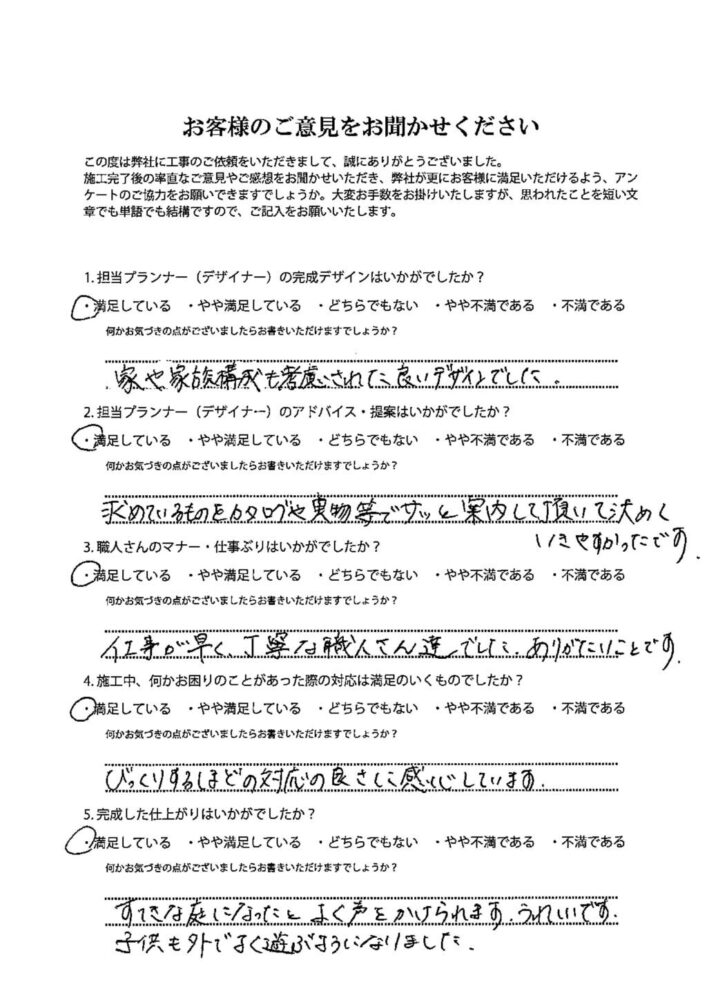 お客様のご意見をお聞かせください
この度は弊社に工事のご依頼をいただきまして、誠にありがとうございました。
施工完了後の率直なご意見やご感想をお聞かせいただき、弊社が更にお客様に満足いただけるよう、アン
ケートのご協力をお願いできますでしょうか。大変お手数をお掛けいたしますが、思われたことを短い文
章でも単語でも結構ですので、ご記入をお願いいたします。
1. 担当プランナー（デザイナー）の完成デザインはいかがでしたか？
・満足している ・やや満足している ・どちらでもない ・やや不満である ・不満である
何かお気づきの点がございましたらお書きいただけますでしょうか？
家や家族構成も考慮された良いデザインでした。
2. 担当プランナー（デザイナー）のアドバイス・提案はいかがでしたか？
・満足している ・やや満足している ・どちらでもない ・やや不満である ・不満である
何かお気づきの点がございましたらお書きいただけますでしょうか？
求めているものをカタログや実物等でサッと案内して頂いて決めく
いきやすかったです.
3. 職人さんのマナー・仕事ぶりはいかがでしたか？
・満足している ・やや満足している ・どちらでもない ・やや不満である ・不満である
何かお気づきの点がございましたらお書きいただけますでしょうか？
仕事が早く、丁寧な職人さん達でした. ありがたいことです.
4. 施工中、何かお困りのことがあった際の対応は満足のいくものでしたか？
・満足している ・やや満足している ・どちらでもない ・やや不満である ・不満である
何かお気づきの点がございましたらお書きいただけますでしょうか？
びっくりするほどの対応の良さに感心しています.
5. 完成した仕上がりはいかがでしたか？
・満足している ・やや満足している ・どちらでもない ・やや不満である ・不満である
何かお気づきの点がございましたらお書きいただけますでしょうか？
すてきな庭になったと よく声をかけられます. うれしいです.
子供も外でよく遊ぶようになりました.